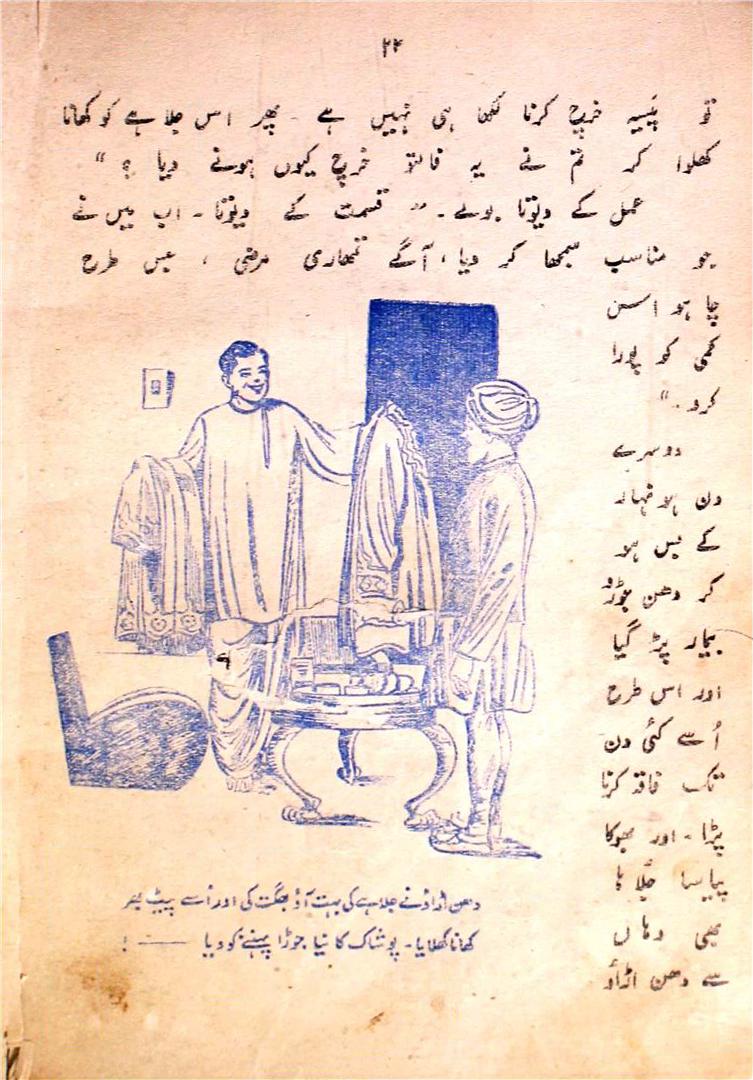 ۲۴
تو پیسہ خرچ کرنا لکھا ہی نہیں ہے ۔ پھر اس جلاہے کو کھانا
کھلوا کر تم نے یہ فالتو خرچ کیوں ہونے دیا ؟ "
عمل کے دیوتا بولے ۔ " قسمت کے دیوتا ۔ اب میں نے
جو مناسب سمجھا کر دیا ، آگے تمھاری مرضی ، جس طرح
چاہو اسن
کمی کو پورا
کرو ۔ "
دوسرے
دن ہونہار
کے بس ہو
کر دھن جوڑو
بیمار پڑ گیا
اور اس طرح
اُسے کئی دن
تک فاقہ کرنا
پڑا ۔ اور بھوکا
پیاسا جُلاہا
بھی وہاں
سے دھن اڑاؤ
دھن اڑاؤ نے جلاہے کی بہت آؤ بھگت کی اور اُسے پیٹ بھر
کھانا کھلایا ۔ پوشاک کا نیا جوڑا پہننے کو دیا —— !